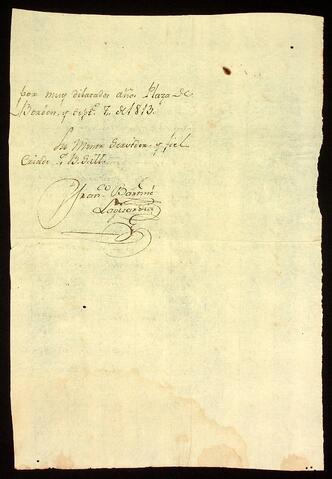 por muy dilatados años. Plaza de
Borbon, y Sept.e 7. de 1813.
Su Menor Servidor, y fiel
Criado Q. B. S.
Fran.co